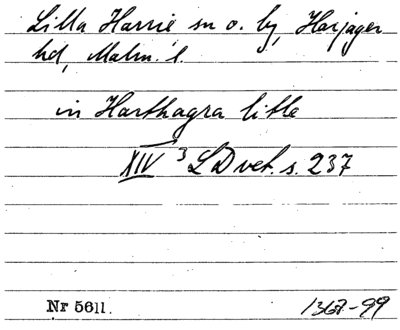 Lilla Harrie sn o. by, Harjager
hd, Malm. l.
in Harthagra litle
XIV 3 LD vet. s. 237
Nr 5611. 1367-99